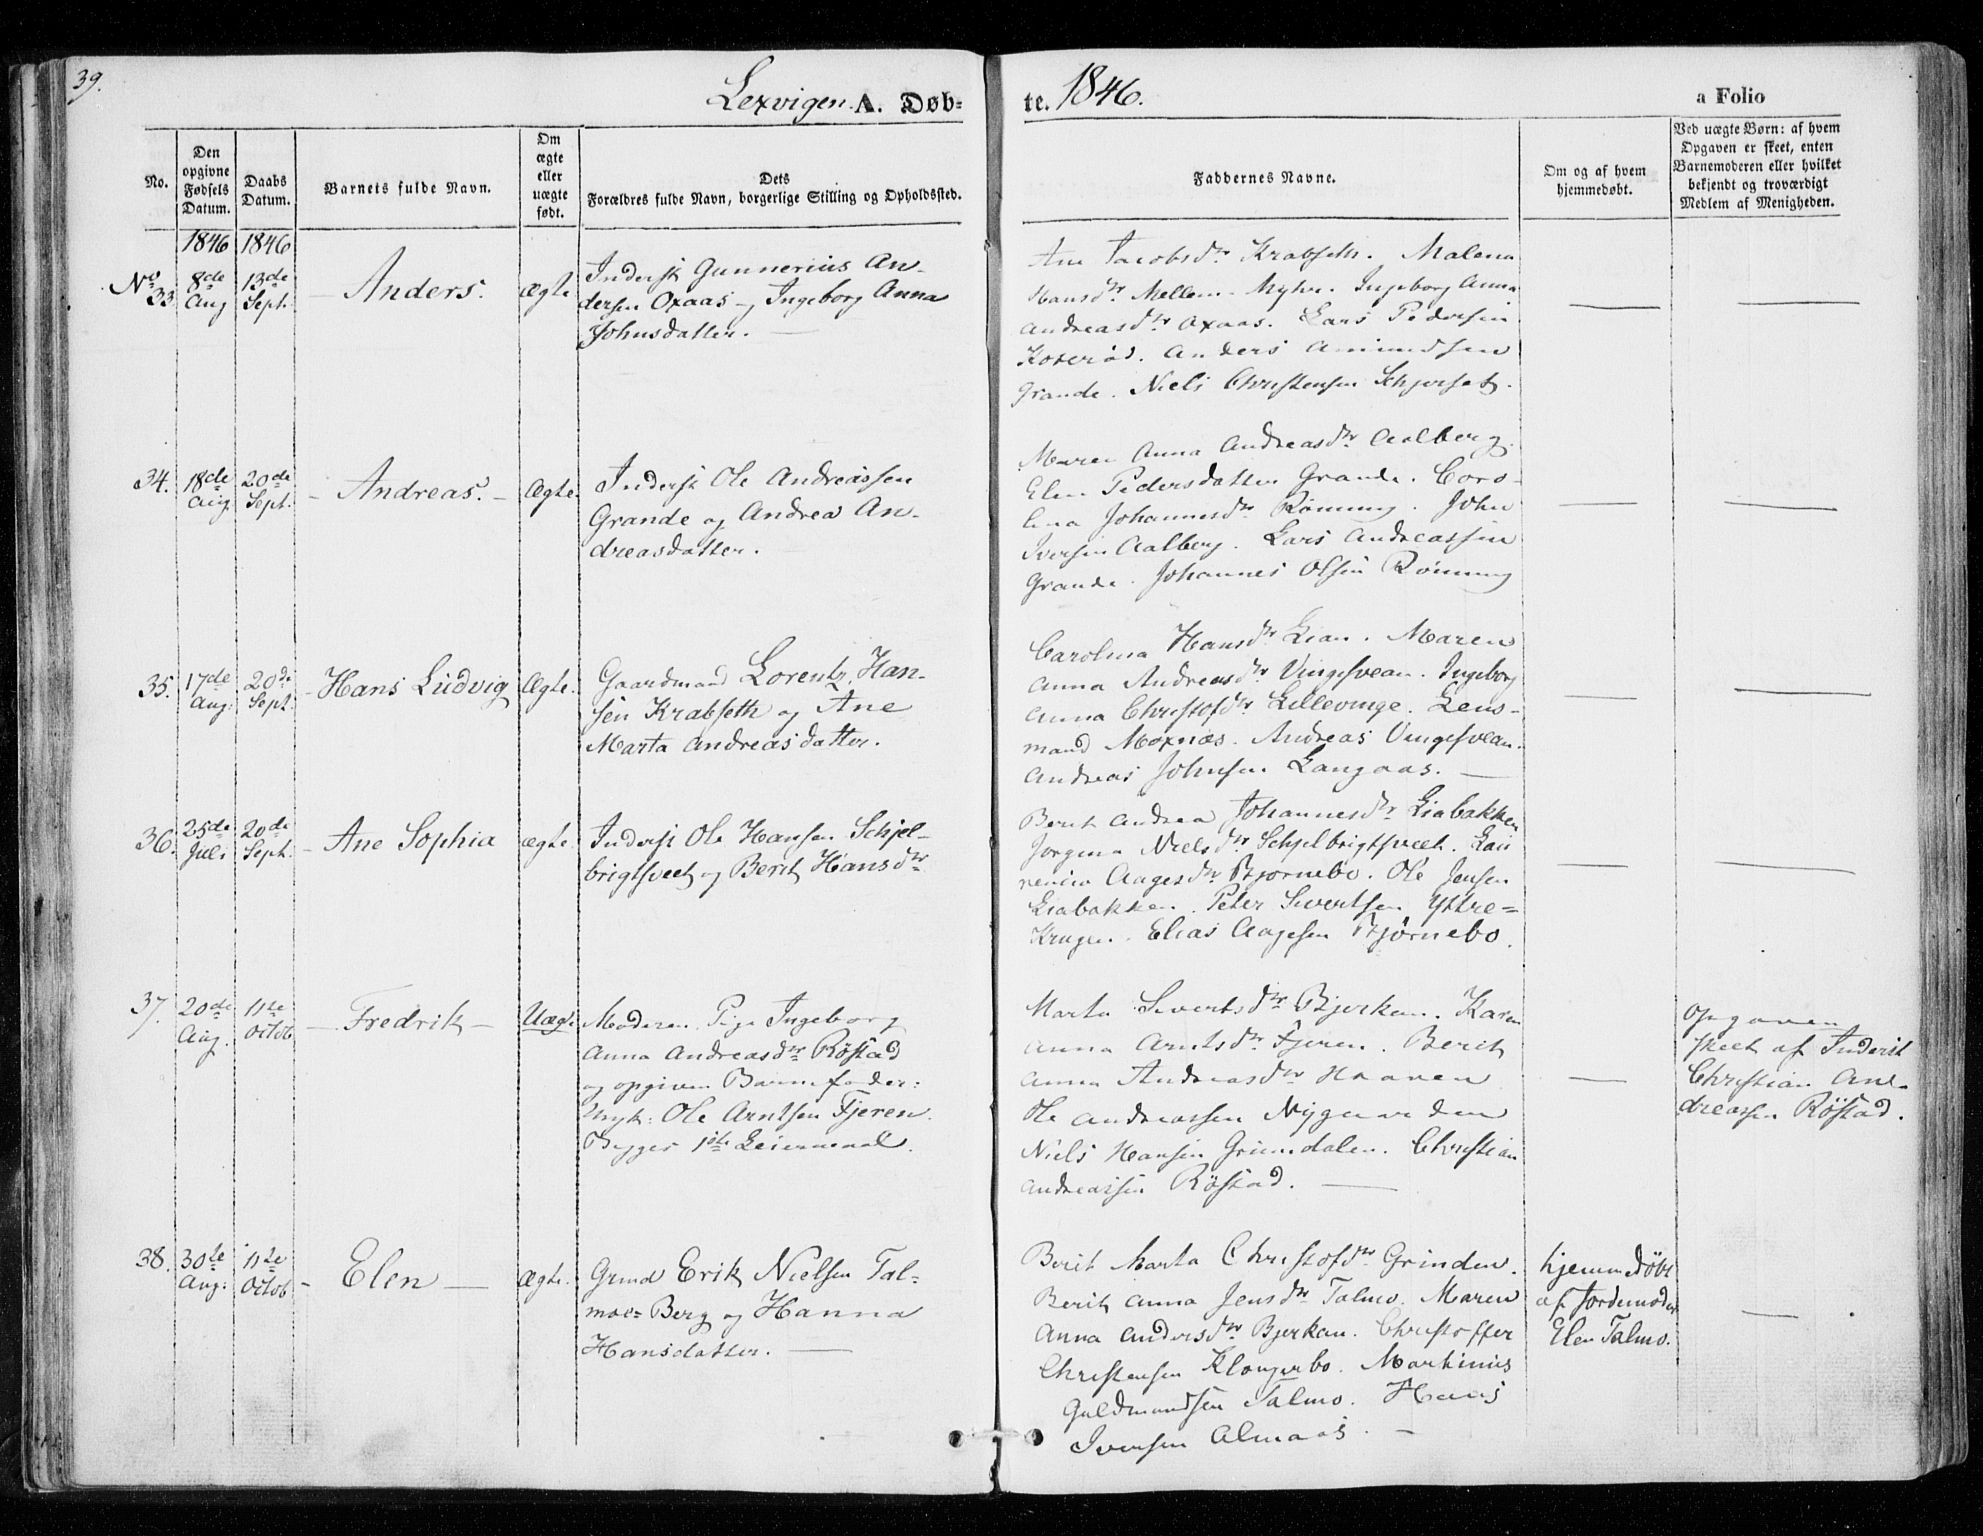 39.
Lexvigen. A. Døb=
te. 1846.
a Folio
No.
Den
opgivne
Fødsels
Datum.
Daabs
Datum.
Barnets fulde Navn.
Om
ægte
eller
uægte
født.
Dets
Forældres fulde Navn, borgerlige Stilling og Opholdssted.
Faddernes Navne.
Om og af hvem
hjemmedøbt.
Ved uægte Børn: af hvem
Opgaven er skeet, enten
Barnemoderen eller hvilket
bekjendt og troværdigt
Medlem af Menigheden.
1846 1846
No 33.
8de Aug
13de Sept.
Anders.
Ægte
Inderst Gunnerius An-
dersen Oxaas og Ingeborg Anna
Johnsdatter. —
Ane Jacobsdr Krabseth. Malena
Hansdr Mellem-Myhr. Ingeborg Anna
Andreasdr Oxaas. Lars Pedersen
Koxeröd. Anders Amundsen
Grande. Niels Christensen Schjerset.
34.
18de Aug.
20de Sept.
Andreas. –
Ægte.
Inderst Ole Andreassen
Grande og Andrea An-
dreasdatter. —
Maren Anna Andreasdr Aalberg.
Elen Pedersdatter Grande. Coro-
lina Johannesdr Rönning. John
Iversen Aalberg. Lars Andreassen
Grande. Johannes Olsen Rönning
35.
17de Aug:
20de Sept.
Hans Ludvig
Ægte.
Gaardmand Lorentz Han-
sen Krabseth og Ane
Marta Andreasdatter.
Carolina Hansdr Lian. Maren
Anna Andreasdr Vingesvean. Ingeborg
Anna Christofdr Lillevinge. Lens-
mand Moxnæs. Andreas Vingesvean.
Andreas Johnsen Langaas. —
36.
25de Juli
20de Sept.
Ane Sophia
ægte.
Inderst Ole Hansen Schjel-
brigtsveet og Berit Hansdr
Berit Andrea Johannesdr Liabakken
Jorgina Nielsdr Schjelbrigtsveet. Lau
rentia Aagesdr Bjørnebo. Ole Jensen
Liabakken. Peter Sivertsen Yttre=
Kragen. Elias Aagesen Bjørnebo.
37.
20de Aug.
11te Octob
Fredrik –
Uægte
Moderen Pige Ingeborg
Anna Andreasdr Röstad
og opgiven Barnefader:
Ungk: Ole Arntsen Fjeren.
Begges 1ste Leiermaal.
Marta Sivertsdr Bjerkan. Karen
Anna Arntsdr Fjeren. Berit
Anna Andreasdr Haaven
Ole Andreassen Nygaarden
Niels Hansen Grønndalen. Christian
Andreassen Röstad. —
Opgaven
skeet af Inderst
Christian An-
dreassen Röstad.
38.
30te Aug:
11te Octob
Elen —
Ægte.
Grmd Erik Nielsen Tal=
moe= Berg og Hanna
Hansdatter. —
Berit Marta Christofdr Grinden.
Berit Anna Jensdr Talmo. Maren
Anna Andersdr Bjerkan. Christoffer
Christensen Klongerbo. Martinus
Guldmundsen Talmo. Hans
Iversen Almaas. —
hjemmedöbt
af Jordemoder
Elen Talmo.